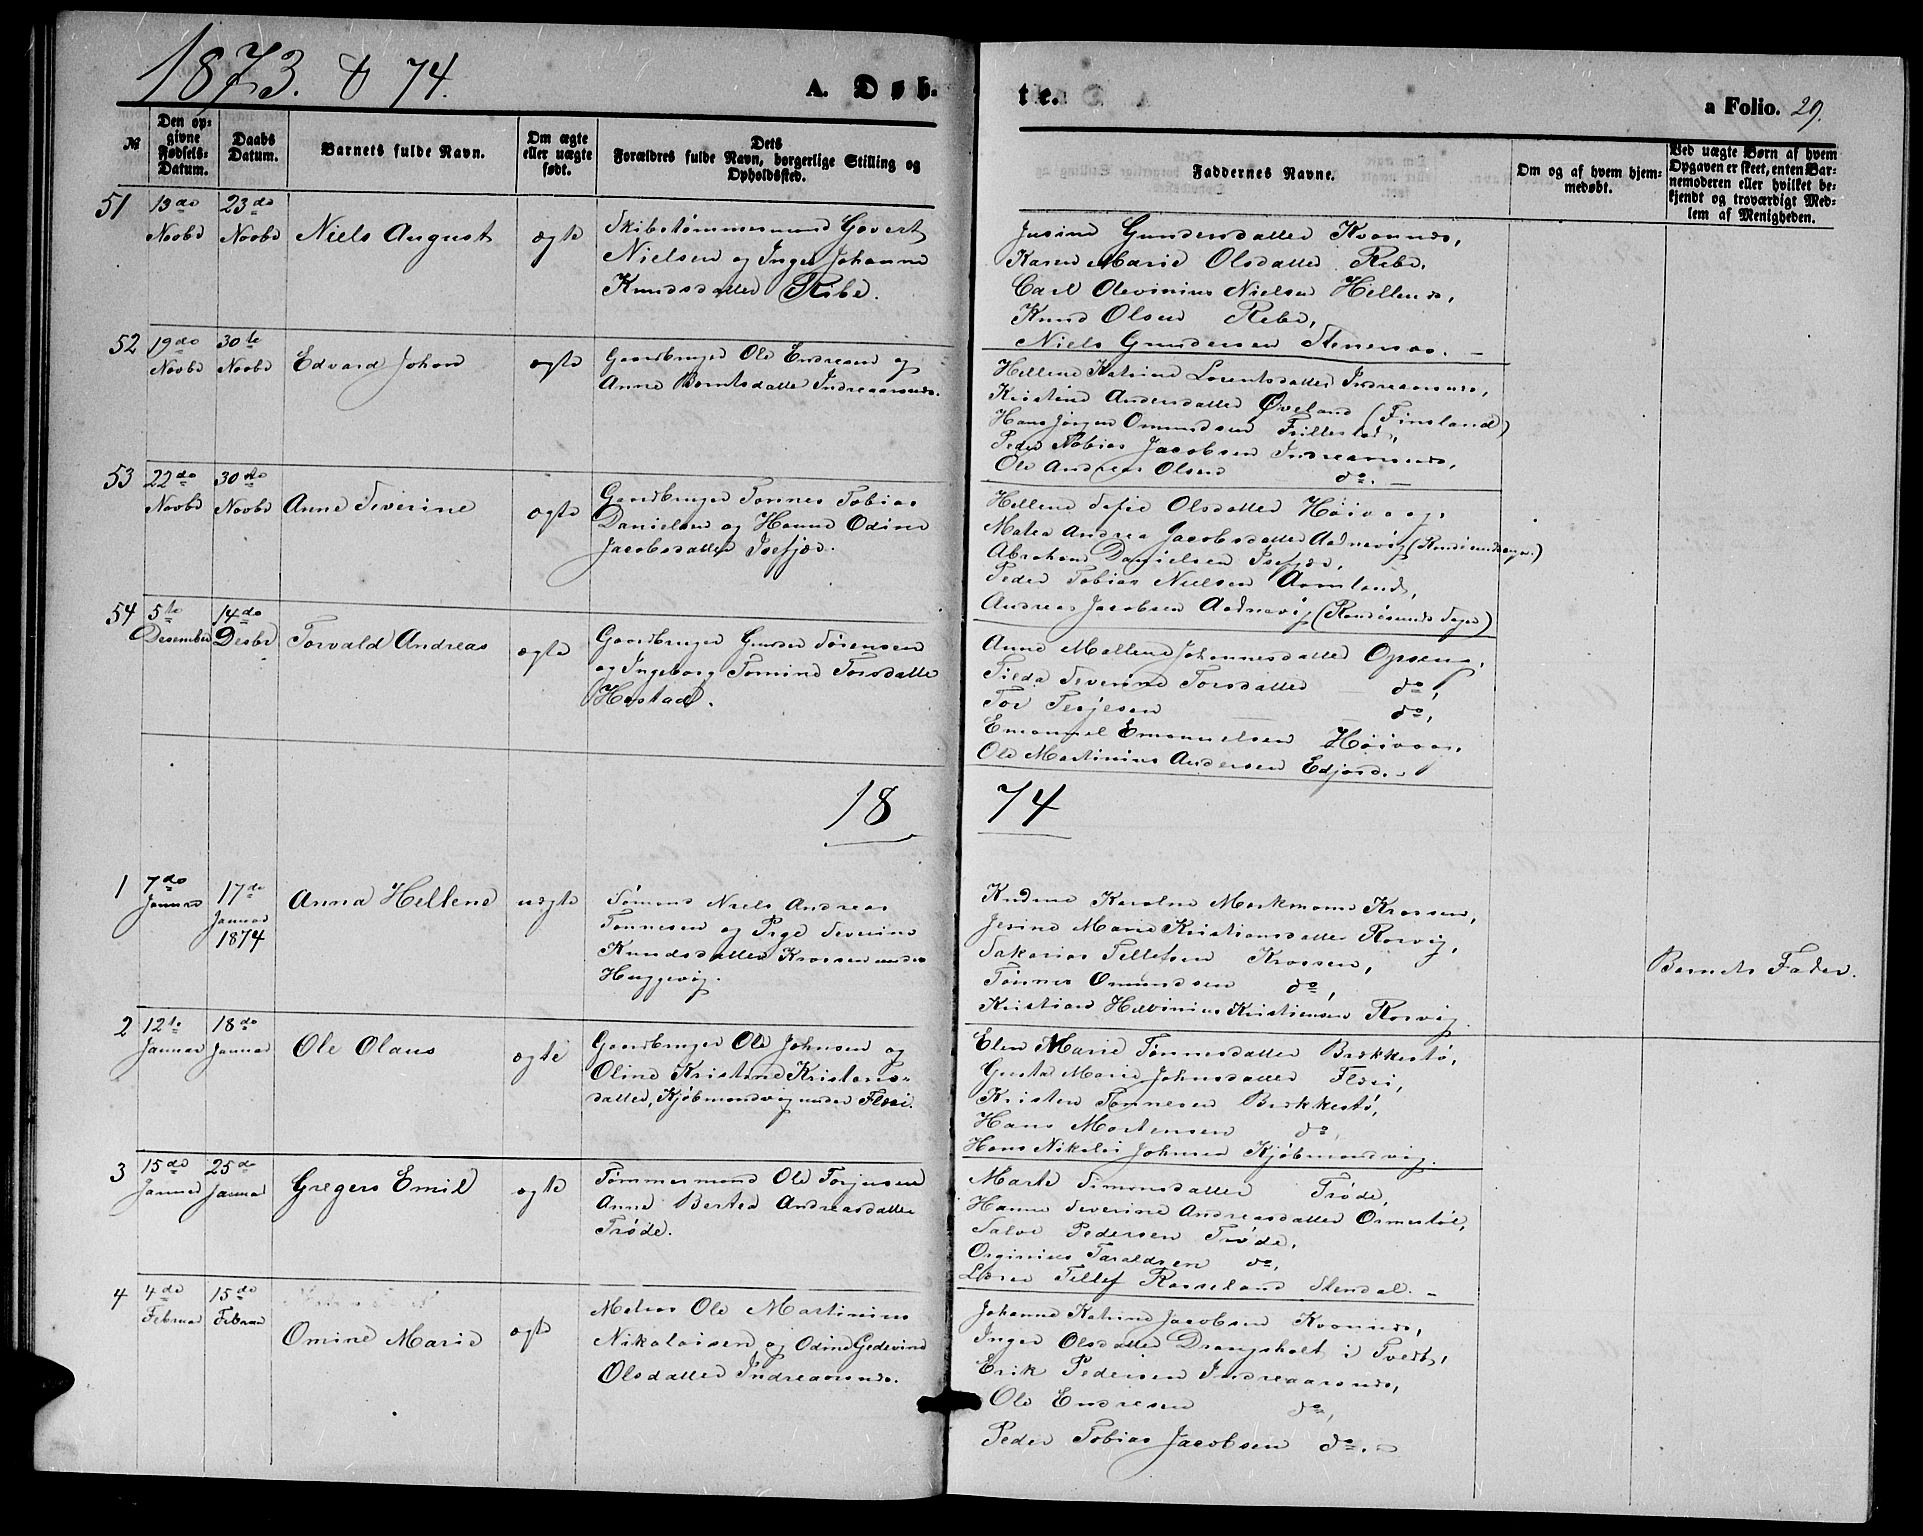 1873. & 74.
A. Døb-
te.
a Folio. 29.
№
Den op-
givne
Fødsels-
Datum.
Daabs
Datum.
Barnets fulde Navn.
Om ægte
eller uægte
født.
Dets
Forældres fulde Navn, borgerlige Stilling og
Opholdssted.
Faddernes Navne.
Om og af hvem hjem-
medøbt.
Ved uægte Børn af hvem
Opgaven er skeet, enten Bar-
nemoderen eller hvilket be-
kjendt og troværdigt Med-
lem af Menigheden.
51
13de
Novbr
23de
Novbr
Niels August
ægte
Skibstømmermand Govert
Nielsen og Inger Johanne
Knudsdatter Ribe.
Gundersdatter Kvannes,
Karen Marie Olsdatter Ribe,
Carl Olevinius Nielsen Hellenes,
Knud Olsen Ribe,
Niels Gundersen Stenersøe.
52
19de
Novbr
30te
Novbr
Edvard Johan
ægte
Gaardbruger Ole Endresen og
Anne Berntsdatter Indreaarsnes.
Hellene Katrine Lorentsdatter Indreaarsnes,
Kristine Andersdatter Øveland (Finsland)
Hans Jørgen Omundsen Frillestad,
Peder Tobias Jacobsen Indreaarsnes,
Ole Andreas Olsen do.
53
22de
Novbr
30te
Novbr
Anne Severine
ægte
Gaardbruger Tønnes Tobias
Danielsen og Hanne Odine
Jacobsdatter Isefjær.
Hellene Sofie Olsdatter Høivaag,
Malea Andrea Jacobsdatter Aadnevig (Randøsund sogn.)
Abraham Danielsen Isefjær,
Peder Tobias Nielsen Aamland,
Andreas Jacobsen Aadnevig (Randøsunds Sogn)
54
5te
Desember
14de
Desbr
Torvald Andreas
ægte
Gaardbruger Gunder Sørensen
og Ingeborg Tomine Torsdatter
Hæstad.
Anne Mallene Johannesdatter Opsens,
Tilda Severine Torsdatter do,
Tor Terjesen do,
Emanuel Emanuelsen Høivaag,
Ole Martinius Andersen Edjord.
18
74
1
7de
Januar
17de
Januar
1874
Anna Hellene
uægte
Sømand Niels Andreas
Tønnesen og Severine
Knudsdatter Krossen under
Huggevig.
Karoline Markmanna Krossen,
Jesine Marie Kristiansdatter Rosvig,
Sakarias Tellefsen Krossen,
Tønnes Omundsen do,
Kristian Helvinius Kristiansen Rosvig.
Barnets Fader.
2
12te
Januar
18de
Januar
Ole Olaus
ægte
Gaardbruger Ole Johnsen og
Oline Kristine Kristens-
datter, Kjøbmandsvig under Flesi.
Elen Marie Tønnesdatter Brækkestø,
Gusta Marie Johnsdatter Flesi,
Kristen Tønnesen Brækkestø,
Hans Mortensen do,
Hans Nikolai Johnsen Kjøbmandsvig.
3
15de
Januar
25de
Januar
Gregers Emil
ægte
Tømmermand Ole Torjusen
Anne Bertea Andreasdatter
Trøde.
Marte Simonsdatter Trøde,
Hanne Severine Andreasdatter Ormestøl,
Salve Pedersen Trøde,
Orginius Taraldsen do,
Lærer Tellef Rosseland Stendal.
4
4de
Februar
15de
Februar
Omine Marie
ægte
Matros Ole Martinius
Nikolaisen og Odine Gedevine
Olsdatter Indreaarsnes.
Johanne Katrine Jacobsen Kvannes,
Inger Olsdatter Drangsholt i Tvedt,
Erik Pedersen Indreaarsnes,
Ole Endresen do,
Peder Tobias Jacobsen do.